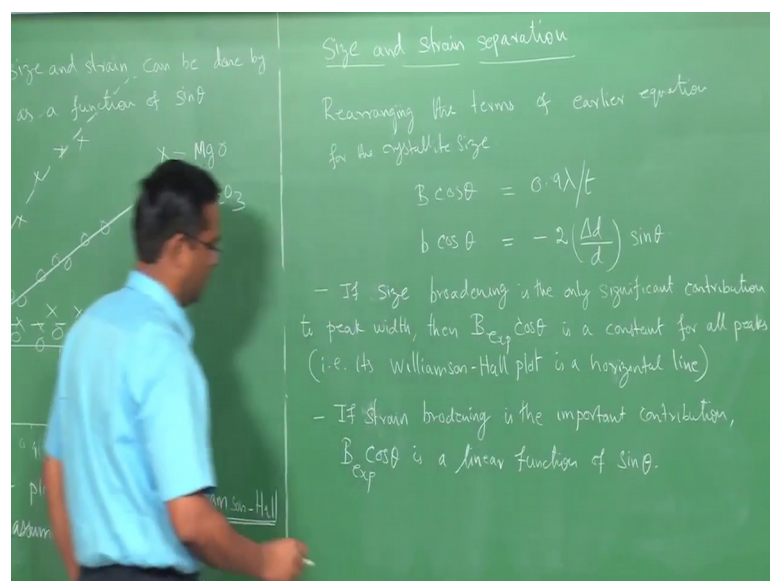 size and strain can be done by
as a function of sinθ
x — MgO
O3
ham son-Hall
assum
Size and strain separation
Rearranging the terms of earlier equation
for the crystallite size
B cosθ = 0.9λ/t
b cosθ = - 2 (Δd/d) sinθ
- If size broadening is the only significant contribution
to peak width, then Bexp cosθ is a constant for all peaks
(i.e. its Williamson-Hall plot is a horizontal line)
- If strain brodening is the important contribution,
Bexp cosθ is a linear function of sinθ.